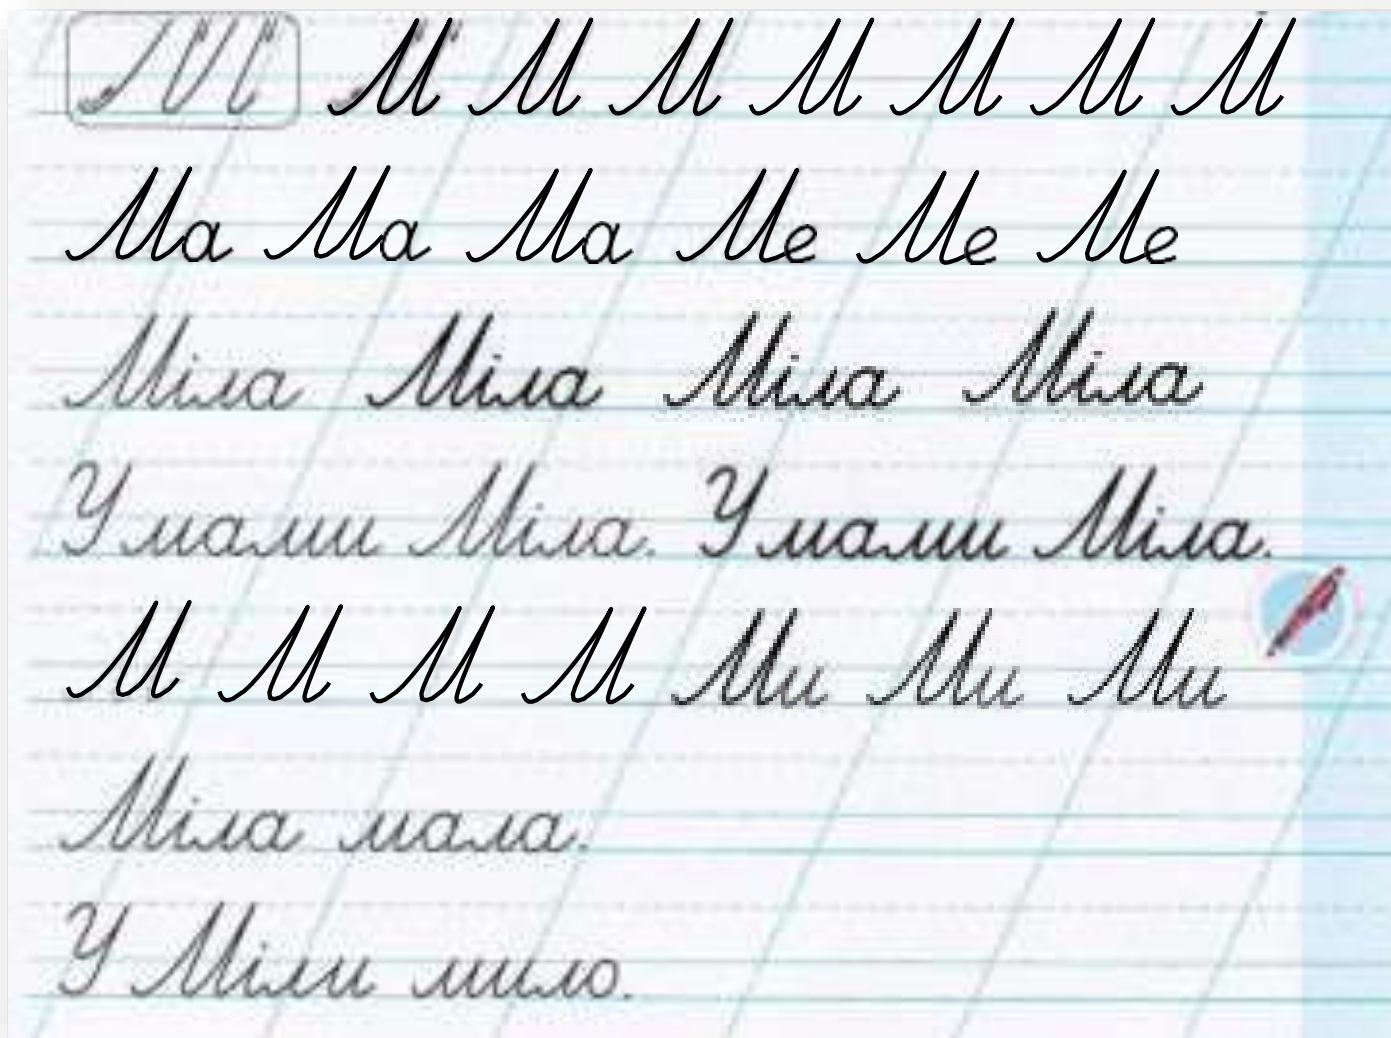 М М М М М М М М
Ма Ма Ма Ме Ме Ме
Міла Міла Міла Міла
У мами Міла. У мами Міла.
М М М М Ми Ми Ми
Міла мала.
У Міли мило.